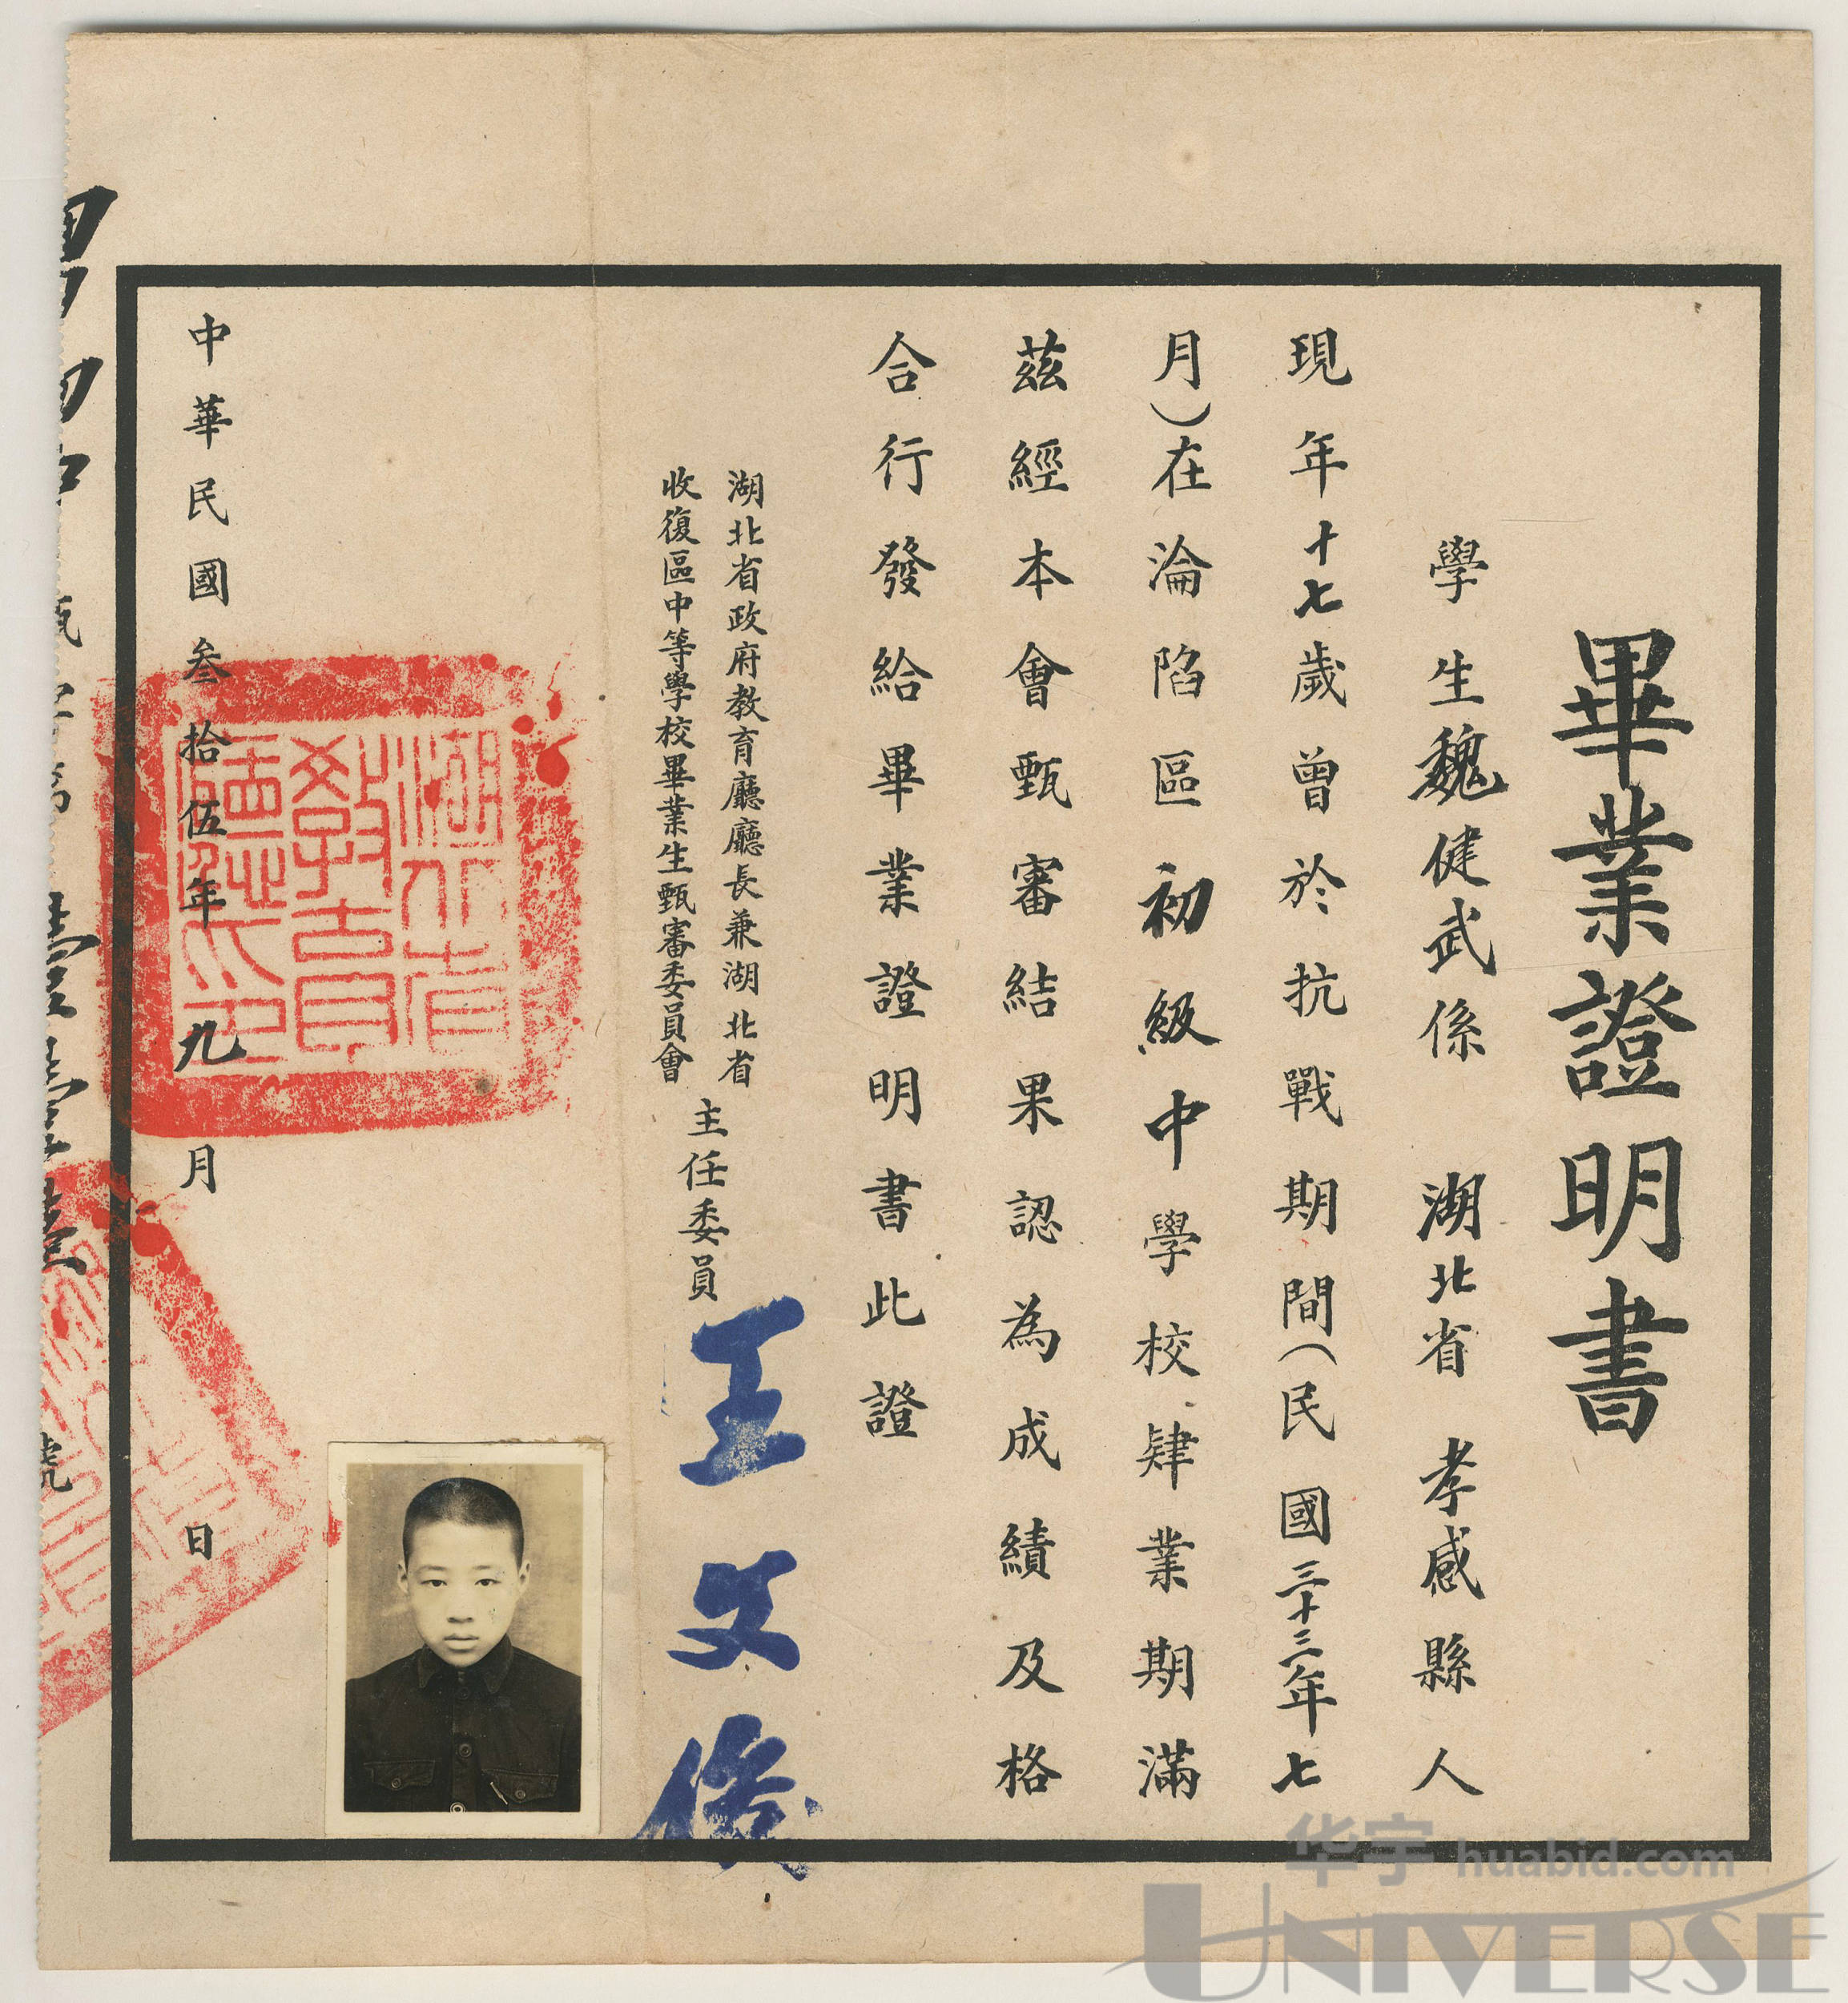 畢業證明書
學生魏健武係 湖北省 孝感縣人
現年十七歲曾於抗戰期間(民國三十三年七
月)在淪陷區初級中學校肄業期滿
茲經本會甄審結果認為成績及格
合行發給畢業證明書此證
湖北省政府教育廳廳長兼湖北省
收復區中等學校畢業生甄審委員會
主任委員
王文俊
中華民國叁拾伍年九月 日
湖北省
教育
廳之印
號
华宇 huabid.com
UNIVERSE